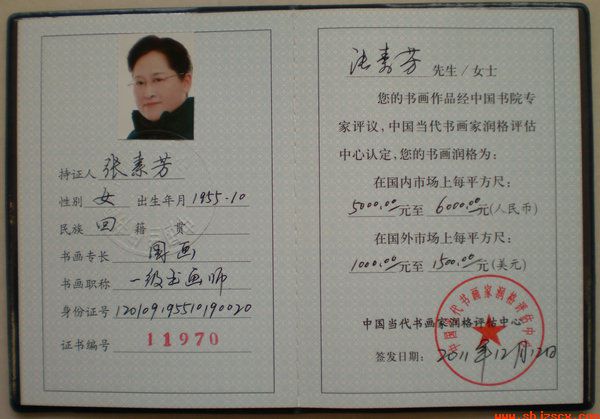 持证人 张素芳
性别 女 出生年月 1955-10
民族 回 籍贯
书画专长 国画
书画职称 一级书画师
身份证号 120109195510190020
证书编号 11970
张素芳 先生/女士
您的书画作品经中国书院专
家评议，中国当代书画家润格评估
中心认定，您的书画润格为：
在国内市场上每平方尺：
5000.00元至 6000.00元(人民币)
在国外市场上每平方尺：
1000.00元至 1500.00元(美元)
中国当代书画家润格评估中心
签发日期：2011年12月12日
中国当代书画家润格评估中心
www.sbjzscx.com